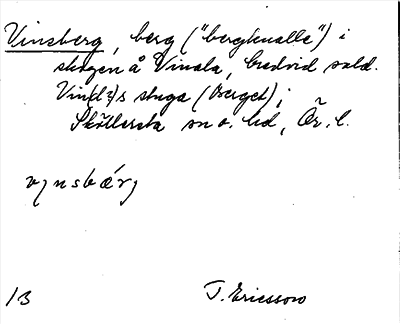 Vinsberg, berg ("bergknalle") i
skogen å Vinala, bredvid sold.
Vin(d?)s stuga (Berget);
Sköllersta sn o. hd, Ör. l.
vinsbärj
13
T. Ericsson